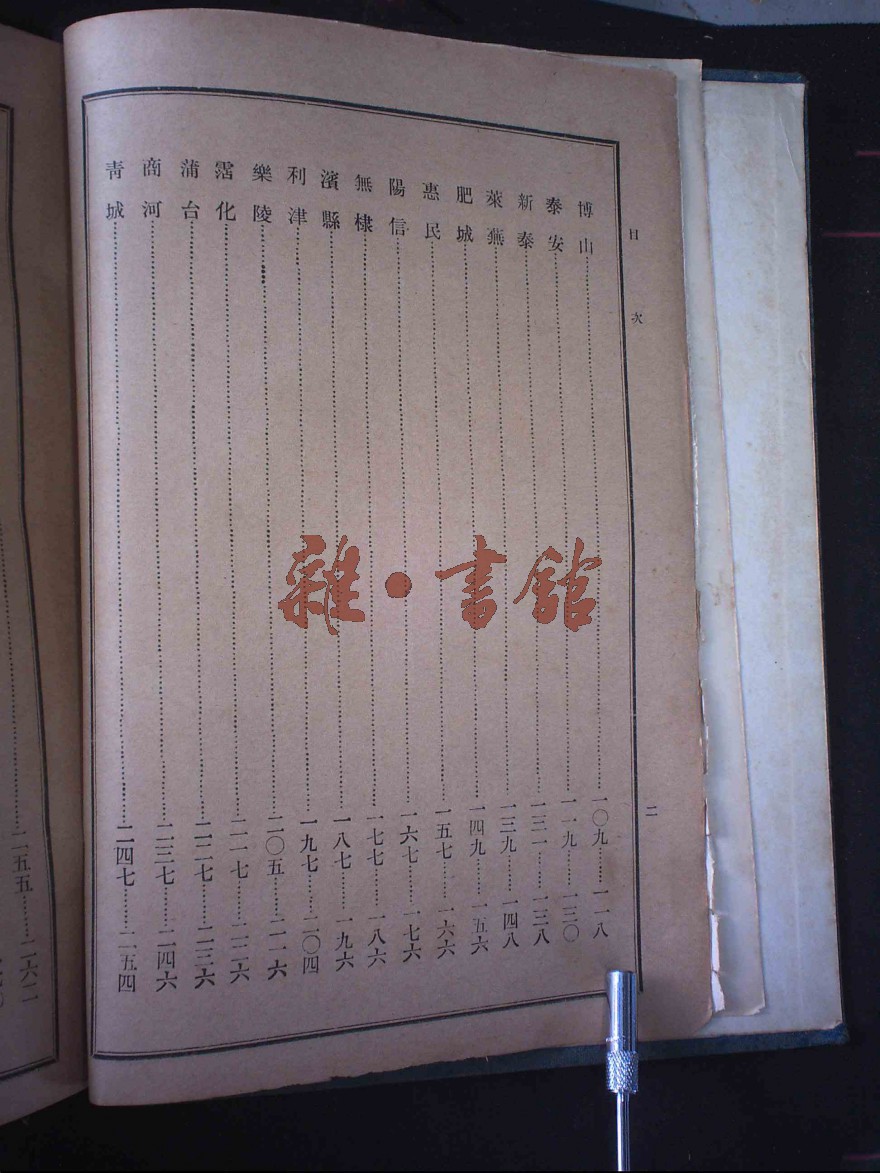 目次
二
博山……一〇九……一一八
泰安……一一九……一三〇
新泰……一三一……一三八
萊蕪……一三九……一四八
肥城……一四九……一五六
惠民……一五七……一六六
陽信……一六七……一七六
無棣……一七七……一八六
濱縣……一八七……一九六
利津……一九七……二〇四
樂陵……二〇五……二一六
霑化……二一七……二二六
蒲台……二二七……二三六
商河……二三七……二四六
青城……二四七……二五四
二五五……二六二
雜·書館